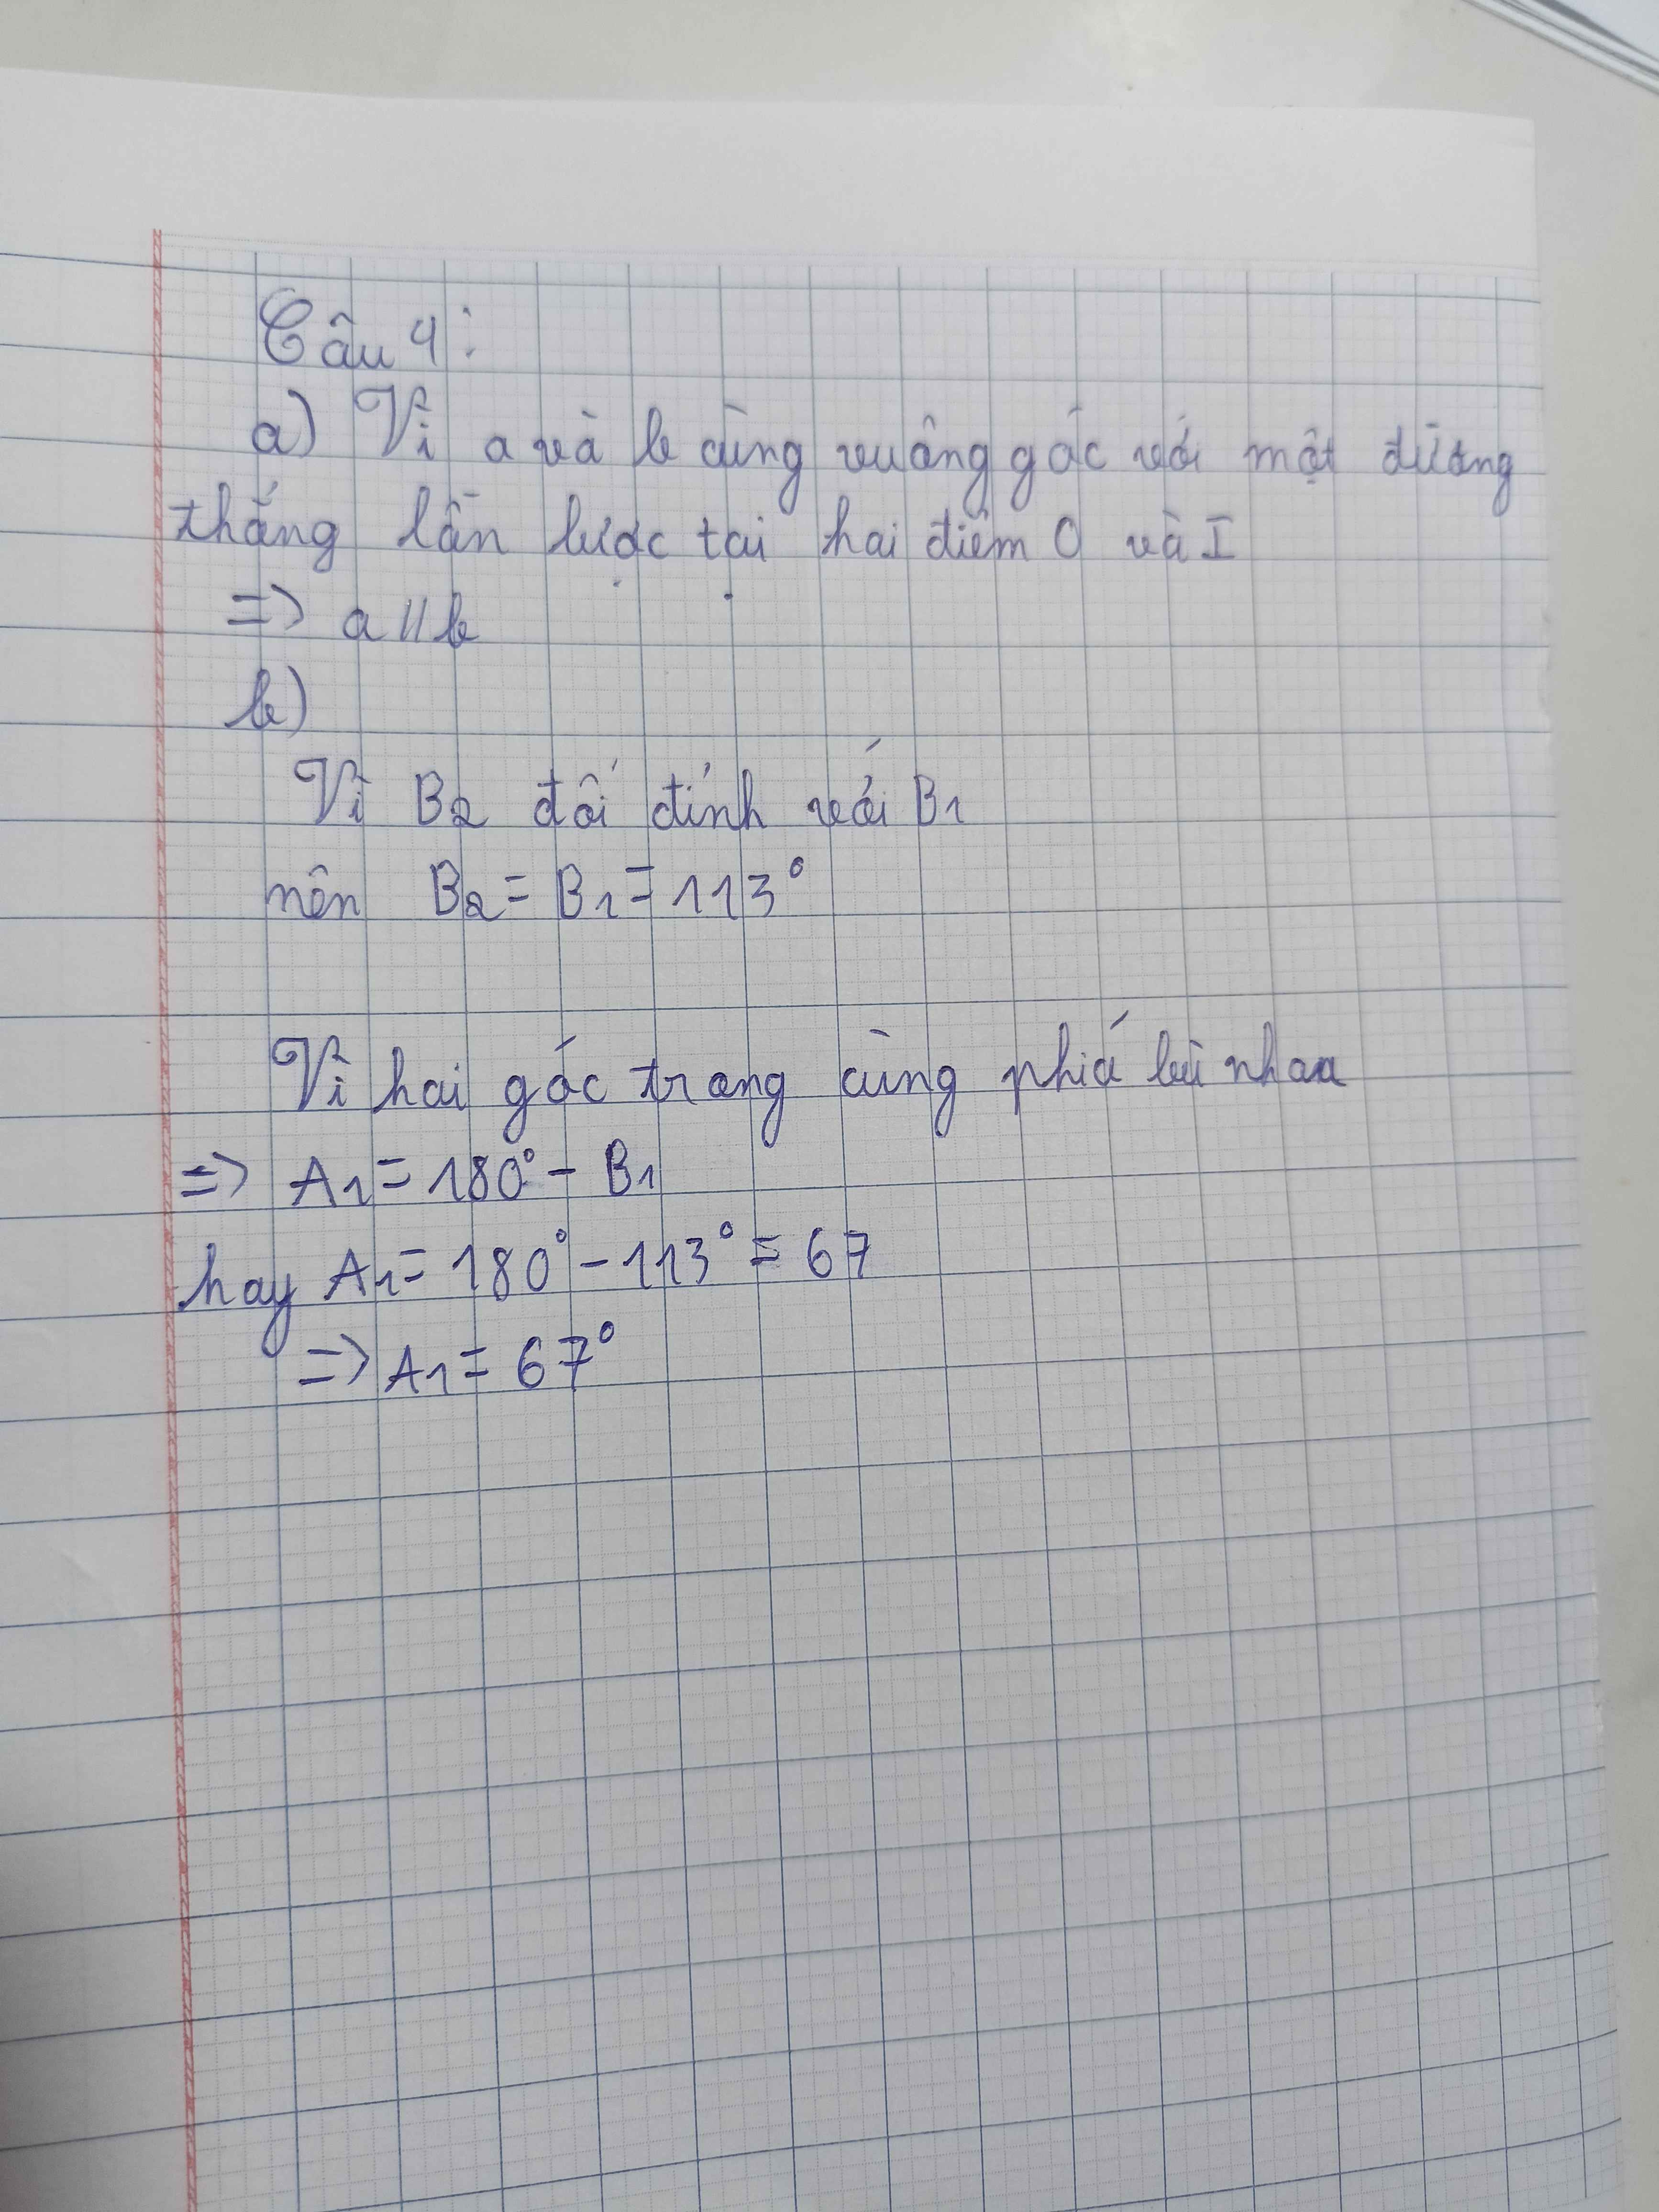 Câu 4:
a) Vì a và b cùng vuông góc với một đường
thẳng lần lược tại hai điểm O và I
=> a // b
b)
Vì B2 đối đỉnh với B1
nên B2 = B1 = 113°
Vì hai góc trong cùng phía bù nhau
=> A1 = 180° - B1
hay A1 = 180° - 113° = 67
=> A1 = 67°